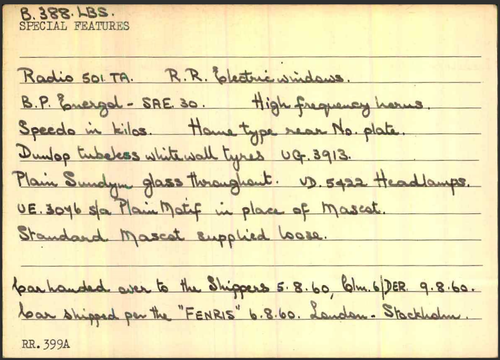 B.388.LBS.
SPECIAL FEATURES
Radio 501.TA. R.R. Electric windows.
B.P. Energol - SAE.30. High frequency horns.
Speedo in kilos. Home type rear No. plate.
Dunlop tubeless whitewall tyres UG.3913.
Plain Sundym glass throughout. UD.5422 Headlamps.
UE.3046 s/a Plain Motif in place of Mascot.
Standard Mascot supplied loose.
Car handed over to the Shippers 5.8.60, Clm.6/DER. 9.8.60.
Car shipped per the "FENRIS" 6.8.60. London - Stockholm.
RR.399A